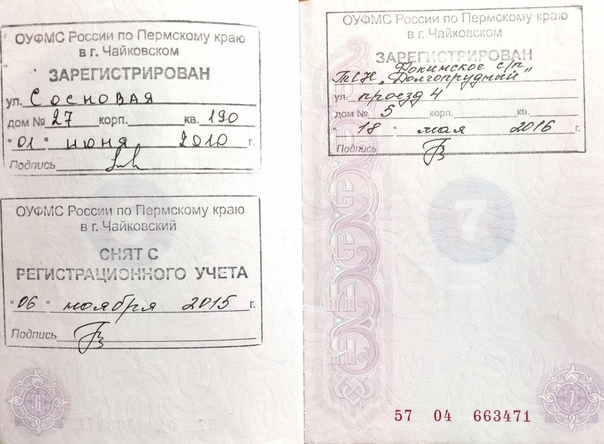 ОУФМС России по Пермскому краю
в г. Чайковском
ЗАРЕГИСТРИРОВАН
ул. Сосновая
дом № 27 корп. кв. 190
"01" июня 2010 г.
Подпись
ОУФМС России по Пермскому краю
в г. Чайковский
СНЯТ С
РЕГИСТРАЦИОННОГО УЧЕТА
"06" ноября 2015 г.
Подпись
6
ОУФМС России по Пермскому краю
в г. Чайковском
ЗАРЕГИСТРИРОВАН
Фокинское с/п,
ТСН "Долгопрудный"
ул. проезд 4
дом № 5 корп. кв.
"18" мая 2016 г.
Подпись
7
7
57 04 663471